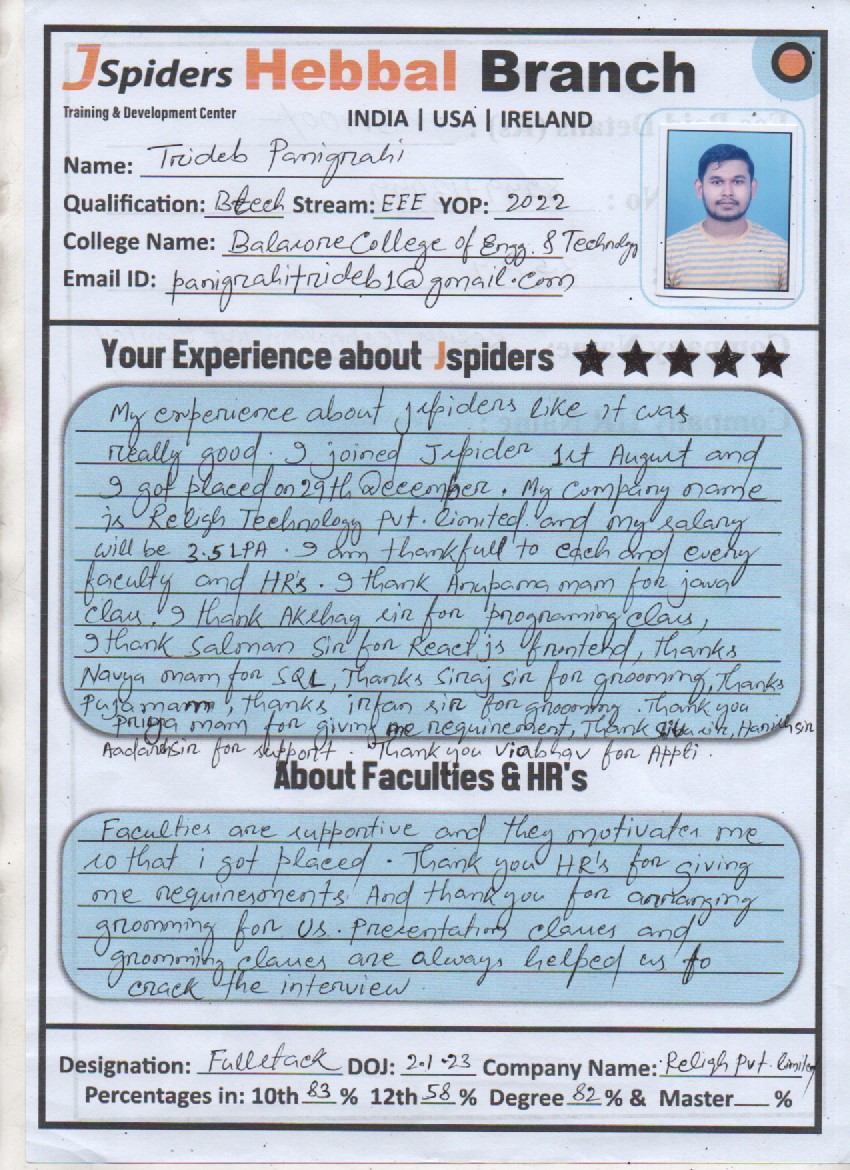 JSpiders Hebbal Branch
Training & Development Center
INDIA | USA | IRELAND
Name: Trideb Panigrahi
Qualification: Btech Stream: EEE YOP: 2022
College Name: Balasore College of Engg. & Technology
Email ID: panigrahitrideb1@gmail.com
Your Experience about Jspiders ★★★★★
My experience about jspiders like it was
really good. I joined Jspider 1st August and
I got placed on 29th December. My Company name
is Religh Technology Pvt. limited. and my salary
will be 3.5 LPA. I am thankfull to each and every
faculty and HR's. I thank Anupama mam for java
class. I thank Akshay sir for programing class,
I thank Salman Sir for React js frontend, Thanks
Navya mam for SQL, Thanks Siraj sir for groooming, Thanks
Puja mam, thanks irfan sir for grooming. Thank you
Priya mam for giving me requirement, Thank sir, Harish sir
Aadarsh sir for support. Thank you Viabhav for Appti.
About Faculties & HR's
Faculties are supportive and they motivates me
so that i got placed. Thank you HR's for giving
me requirements. And thank you for arranging
gromming for Us. Presentation classes and
gromming classes are always helped us to
crack the interview.
Designation: Fullstack DOJ: 2.1.23 Company Name: Religh Pvt. limited
Percentages in: 10th 83 % 12th 58 % Degree 82 % & Master___ %